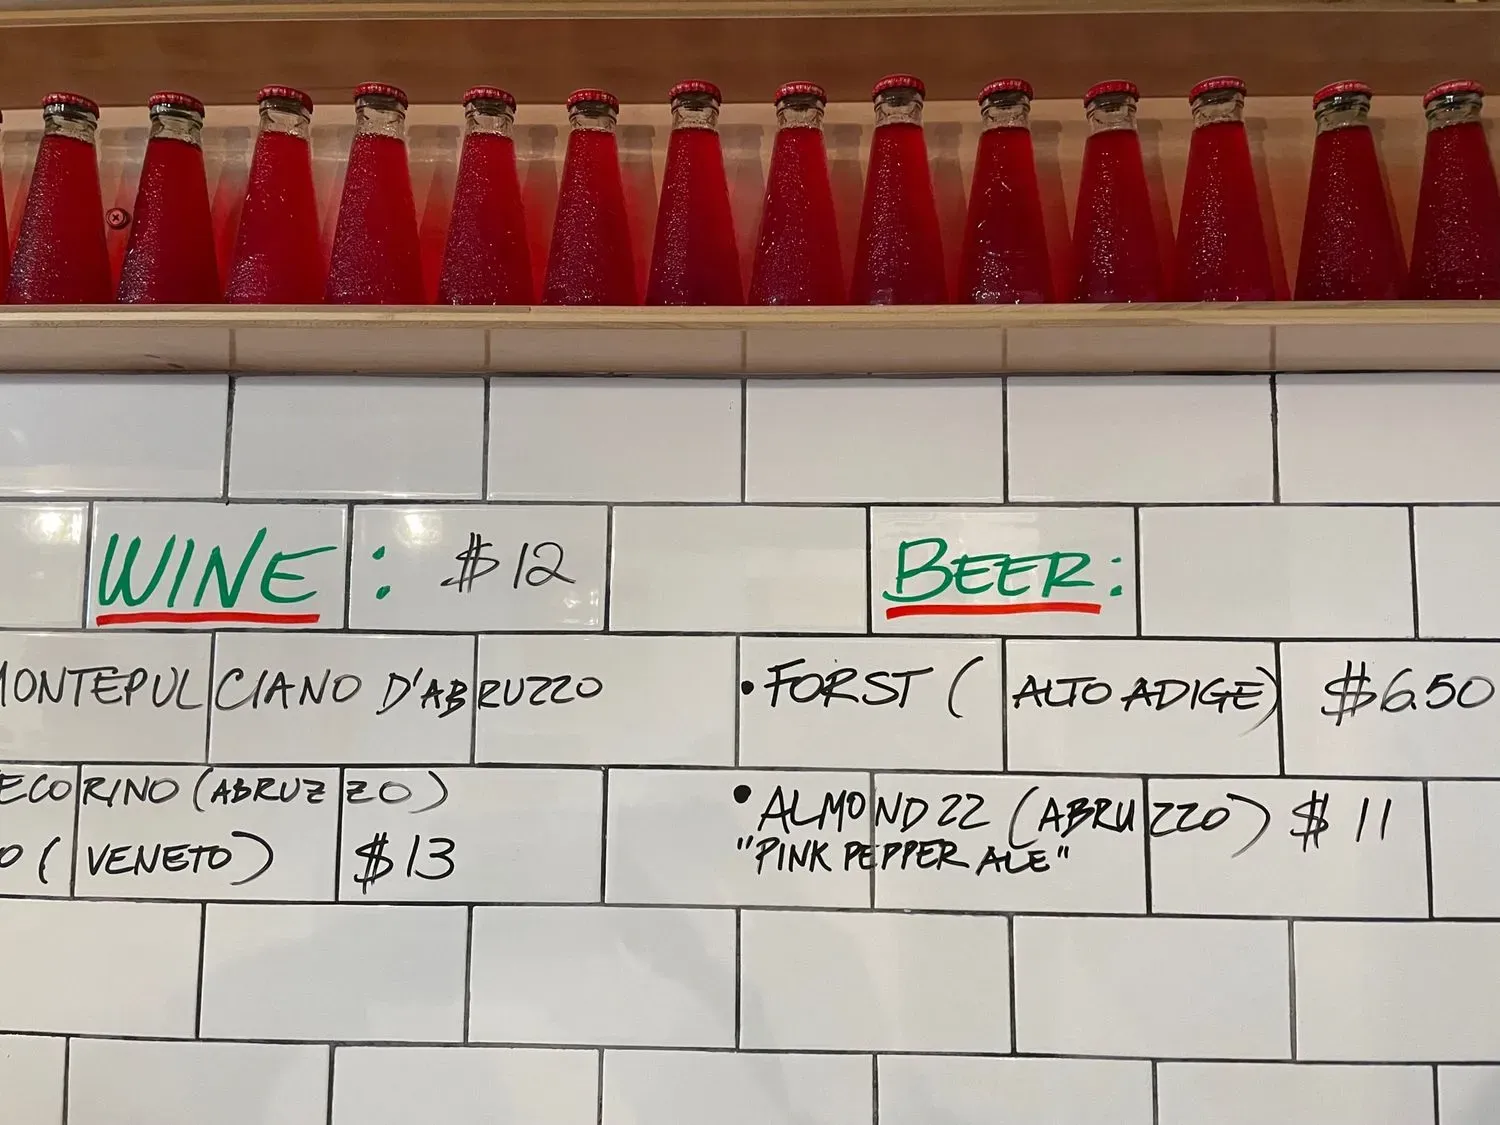 WINE: $12
MONTEPULCIANO D'ABRUZZO
ECORINO (ABRUZZO)
O (VENETO) $13
BEER:
• FORST (ALTO ADIGE) $6.50
• ALMOND 22 (ABRUZZO) $11
"PINK PEPPER ALE"